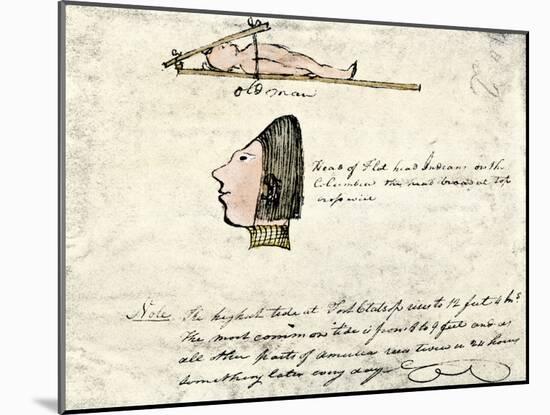 old man
Head of Flat head Indians on the
Columbia the head broad at top
crosswise
Note. The highest tide at Fort Clatsop rises to 12 feet 4 Ins
The most common tide is from 6 to 9 feet and as
all other parts of america rises twice in 24 hours
something later every day